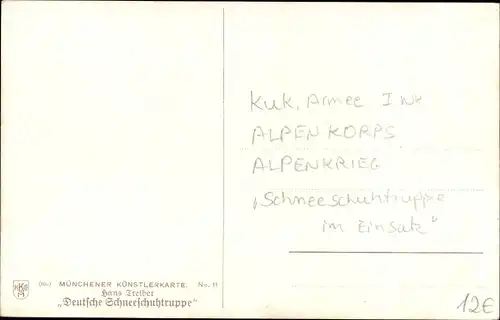 KuK. Armee I WK
ALPENKORPS
ALPENKRIEG
„Schneeschuhtruppe
im Einsatz"
MÜNCHENER KÜNSTLERKARTE. No. 11
Hans Treiber
„Deutsche Schneeschuhtruppe"
12€